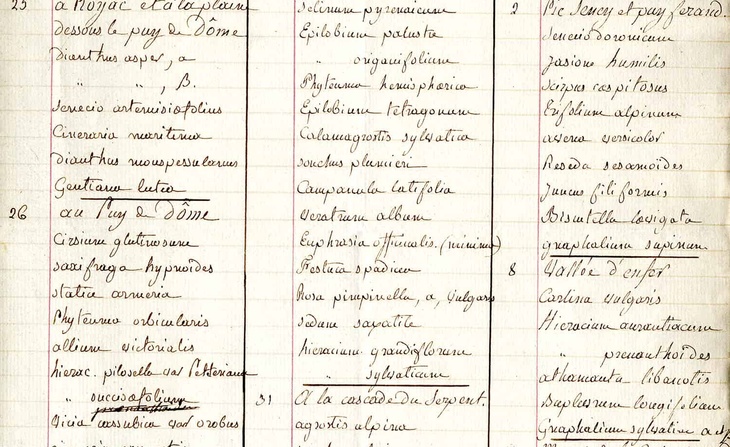 25 à Royac et à la plaine
dessous le puy de Dôme
Dianthus asper, a
" ", B.
Senecio artemisiæfolius
Cineraria maritima
Dianthus monspessulanus
Gentiana lutea
26 au Puy de Dôme
Cirsium glutinosum
saxifraga hypnoïdes
statice armeria
Phyteuma orbicularis
allium victorialis
hierac. piloselle var Peteriana
" succisæfolium
Vicia cassubica var orobus
selinum pyrenaicum
Epilobium palustra
" origanifolium
Phyteuma hemisphærica
Epilobium tetragonum
Calamagrostis sylvatica
sonchus plumieri
Campanula latifolia
veratrum album
Euphrasia officinalis (minima)
Festuca spadicea
Rosa pimpinella, a, vulgaris
sedum saxatile
hieracium grandiflorum
" sylvaticum
31 A la cascade du Serpent.
agrostis alpina
2 Pic Sency et puy ferand.
senecio doronicum
Jasione humilis
Scirpus cæspitosus
Trifolium alpinum
avena versicolor
Reseda sesamoïdes
Juncus filiformis
Biscutella lævigata
gnaphalium supinum
8 Vallée d'enfer
Carlina vulgaris
Hieracium aurantiacum
" prenanthoïdes
athamanta libanotis
Buplevrum longifolium
Gnaphalium sylvaticum